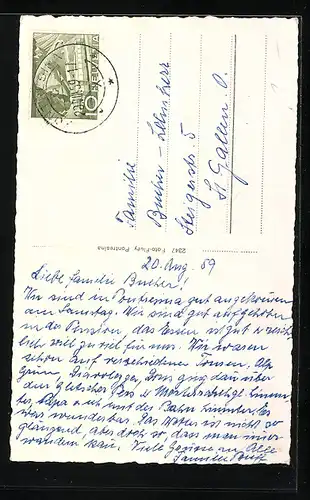 HELVETIA
10
Familie
Bucher - Lehnherr
Steigerstr. 5
St. Gallen. O.
2347 Foto-Flury Pontresina
20. Aug. 59
Liebe Familie Bucher!
Wir sind in Pontresina gut angekommen
am Samstag. Wir sind gut aufgehoben
in der Pension, das Essen ist gut & reich-
lich viel zu viel für uns. Wir waren
schon auf verschiedene Touren, Alp
Grüm, Diavolezza, ging dann über
den Gletscher Pers & Morteratsch
Papa & ich mit der Bahn
war wunderbar. Das Wetter ist nicht so
glänzend, aber doch so, dass man immer
wandern kann. Viele Grüsse an Alle
Familie